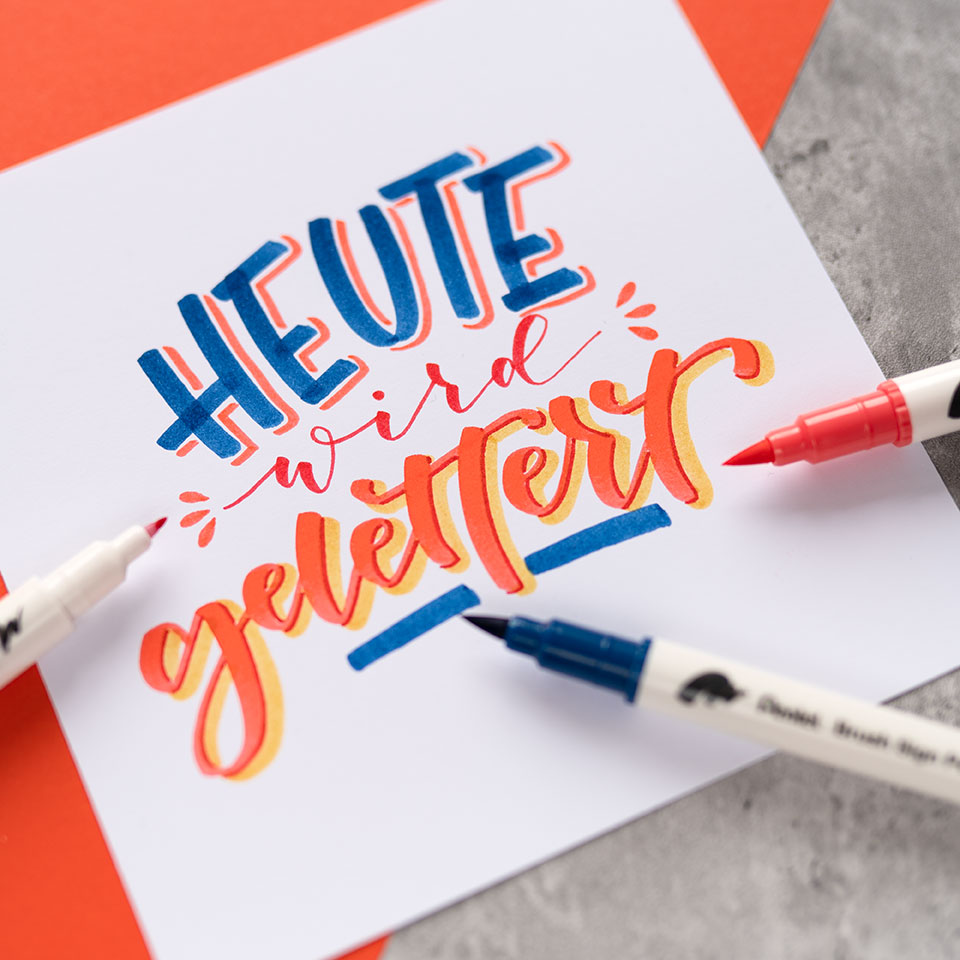 HEUTE
wird
gelettert
Pentel Brush Sign Pe